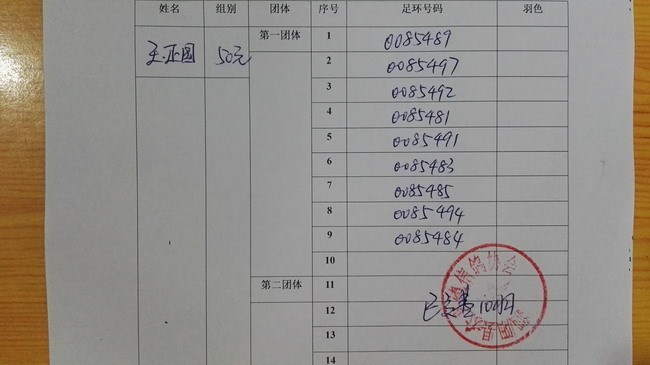 姓名 组别 团体 序号 足环号码 羽色
王正圆 50元 第一团体 1 0085489
2 0085497
3 0085492
4 0085481
5 0085491
6 0085483
7 0085485
8 0085494
9 0085484
10
第二团体 11
12
13
14
信鸽协会